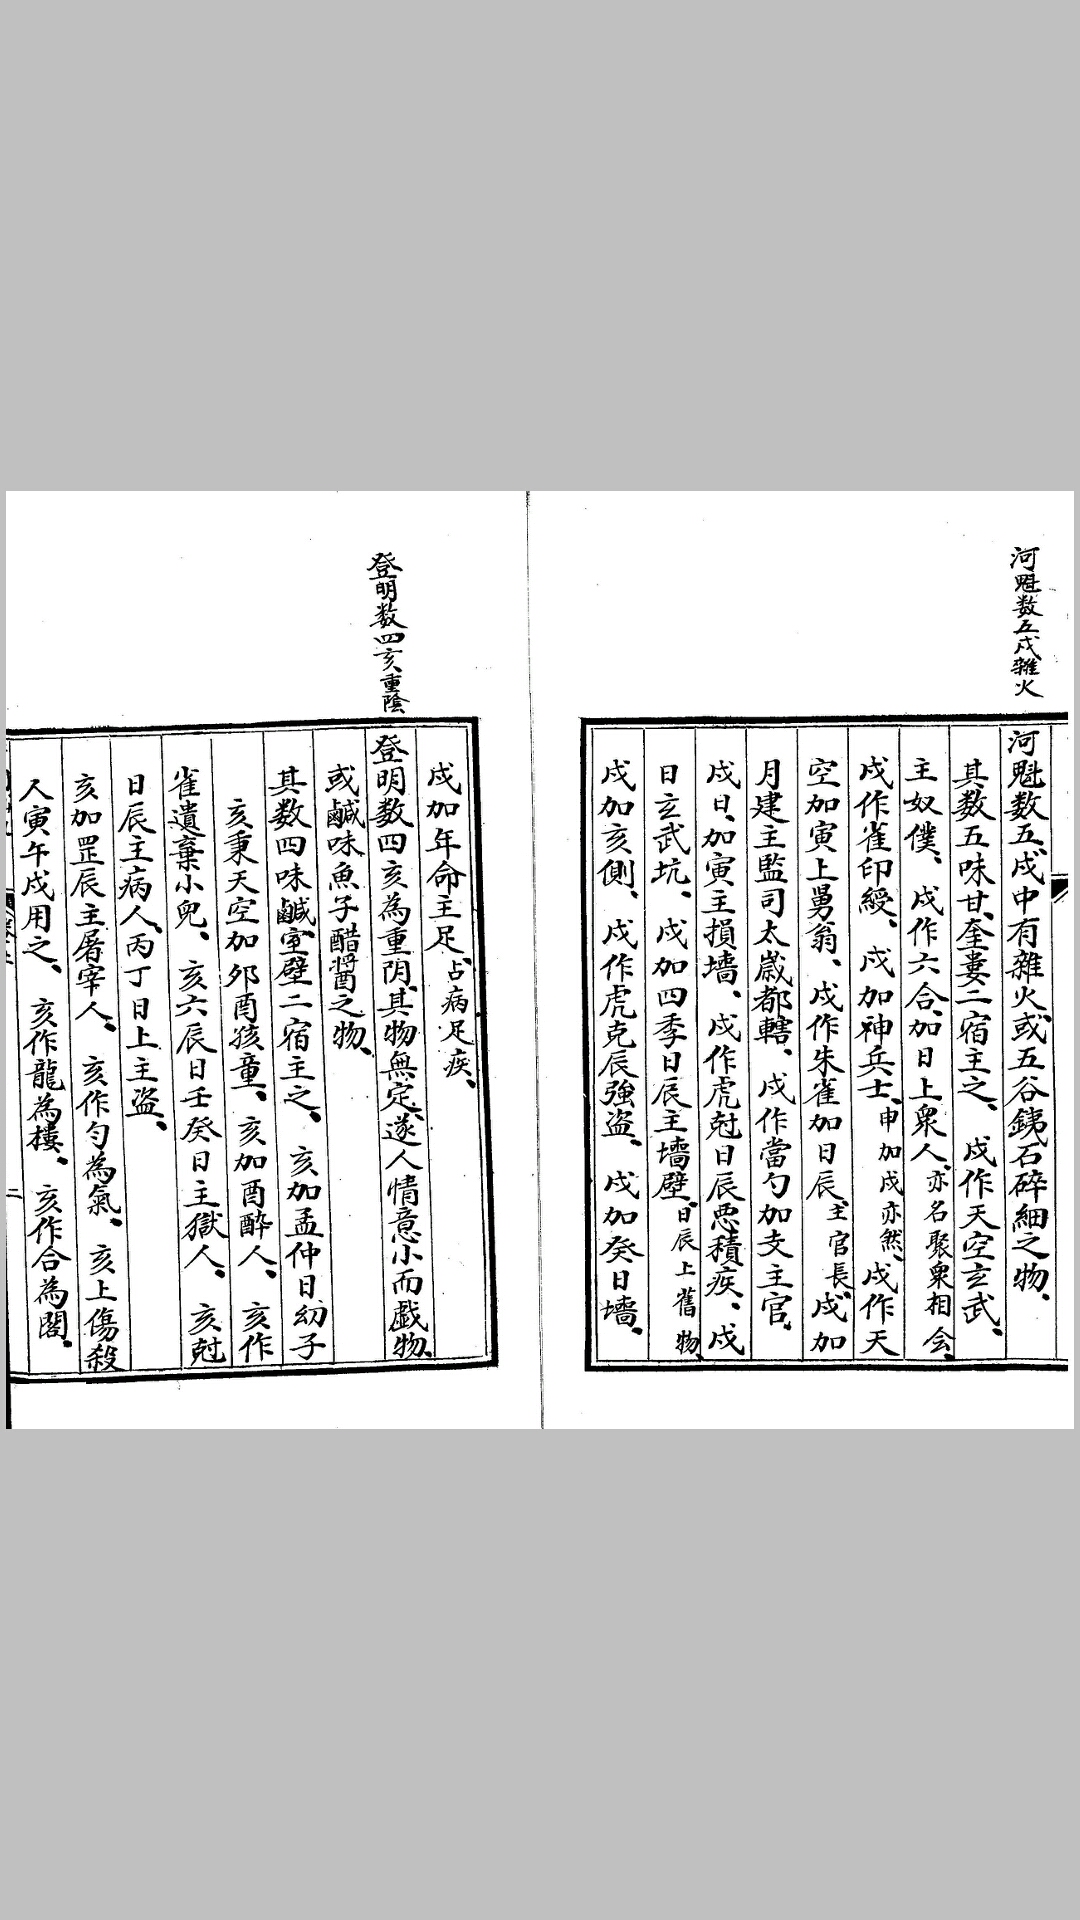 河魁数五戌雜火
河魁数五戌中有雜火或五谷銕石碎細之物、
其数五味甘奎婁二宿主之、戌作天空玄武、
主奴僕、戌作六合加日上衆人、亦名聚衆相会
戌作雀印綬、戌加神兵士、申加戌亦然、戌作天
空加寅上舅翁、戌作朱雀加日辰、主官長、戌加
月建主監司太歲都轄、戌作當勺加支主官、
戌日、加寅主損墻、戌作虎尅日辰恶積疾、戌
日玄武坑、戌加四季日辰主墻壁、日辰上舊物
戌加亥側、戌作虎克辰強盗、戌加癸日墻、
戌加年命主足、占病足疾、
登明数四亥重陰
登明数四亥為重阴其物無定、遂人情意小而戯物、
或鹹味魚子醋醬之物、
其数四味鹹、室壁二宿主之、亥加孟仲日幼子
亥乘天空加夘酉孩童、亥加酉醉人、亥作
雀遺棄小兒、亥六辰日壬癸日主獄人、亥尅
日辰主病人、丙丁日上主盗、
亥加罡辰主屠宰人、亥作勺為氣、亥上傷殺
人寅午戌用之、亥作龍為樓、亥作合為閣、
二